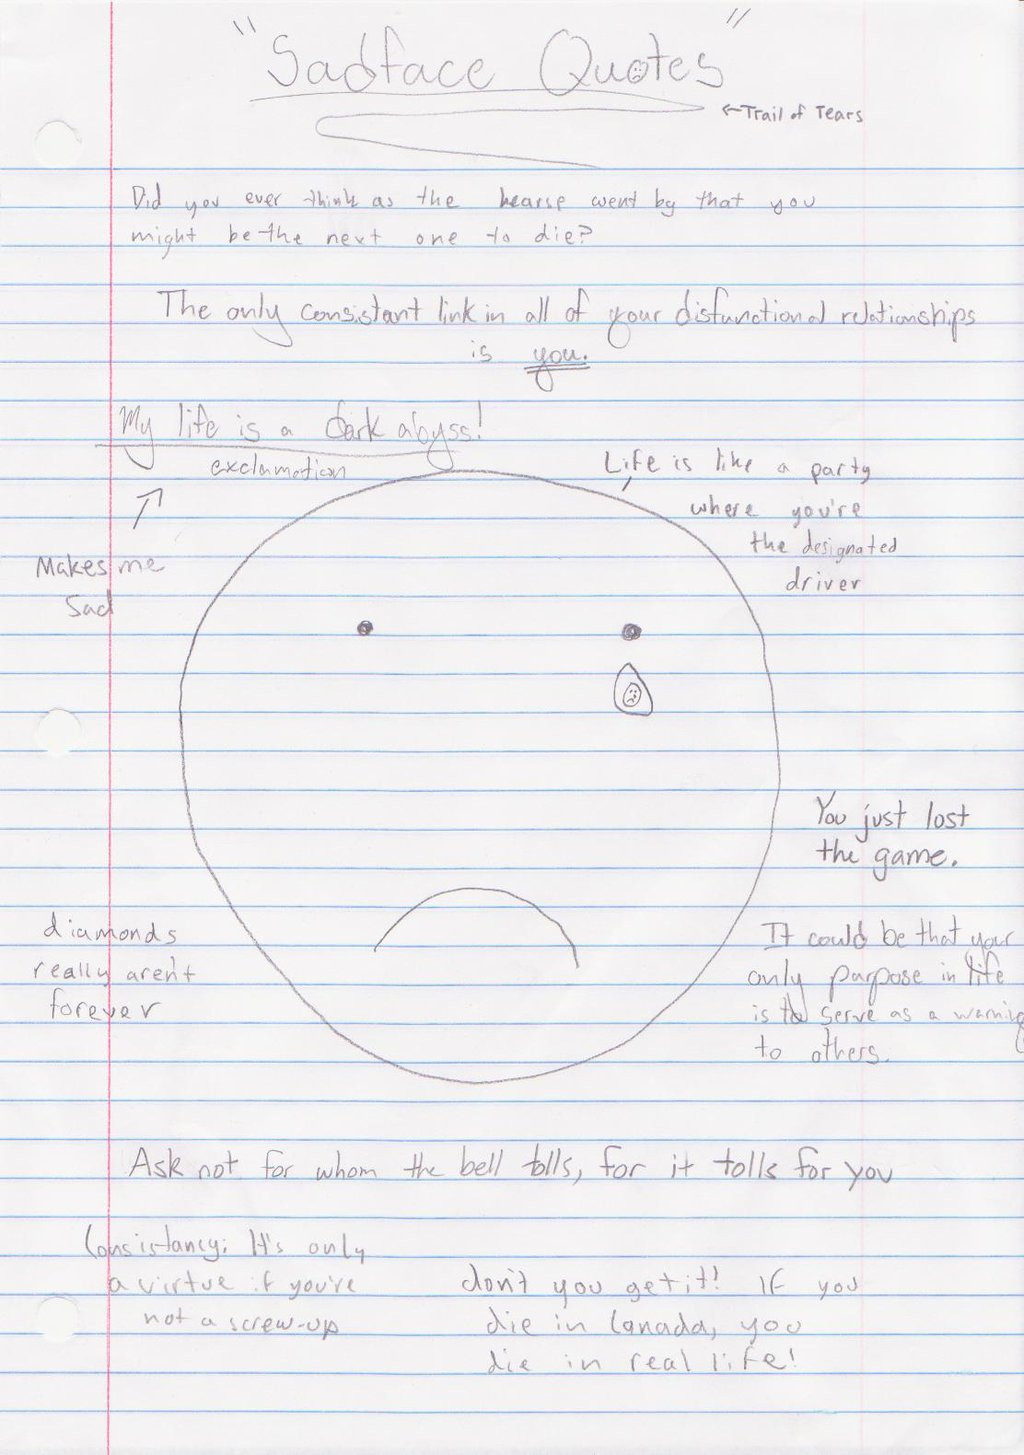 "Sadface Quotes"
←Trail of Tears
Did you ever think as the hearse went by that you
might be the next one to die?
The only consistant link in all of your disfunctional relationships
is you.
My life is a dark abyss!
exclamation
Makes me
Sad
Life is like a party
where you're
the designated
driver
You just lost
the game.
diamonds
really aren't
forever
It could be that your
only purpose in life
is to serve as a warning
to others.
Ask not for whom the bell tolls, for it tolls for you
Consistancy: It's only
a virtue if you're
not a screw-up
don't you get it! If you
die in Canada, you
die in real life!